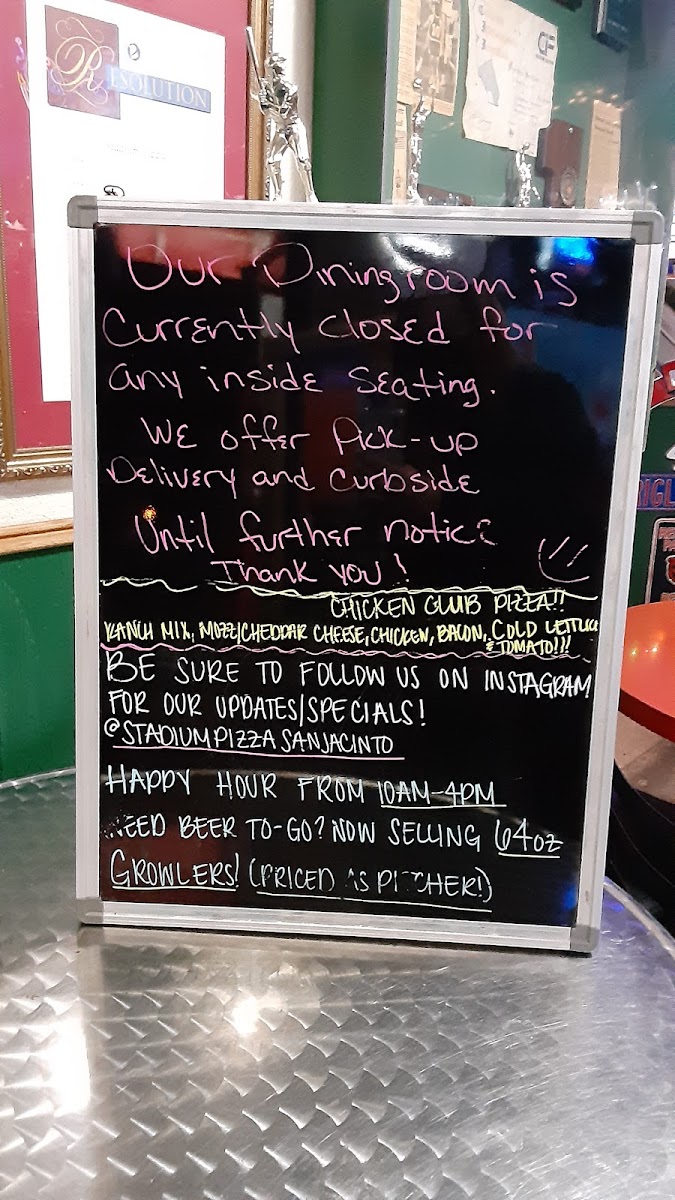 RESOLUTION
GF
Our Diningroom is
Currently closed for
any inside seating.
We offer Pick-up
Delivery and curbside
Until further notice
Thank you!
CHICKEN CLUB PIZZA!!
RANCH MIX, MOZZ/CHEDDAR CHEESE, CHICKEN, BACON, COLD LETTUCE
& TOMATO!!!
BE SURE TO FOLLOW US ON INSTAGRAM
FOR OUR UPDATES/SPECIALS!
@STADIUMPIZZASANJACINTO
HAPPY HOUR FROM 10AM-4PM
NEED BEER TO-GO? NOW SELLING 64oz
GROWLERS! (PRICED AS PITCHER!)